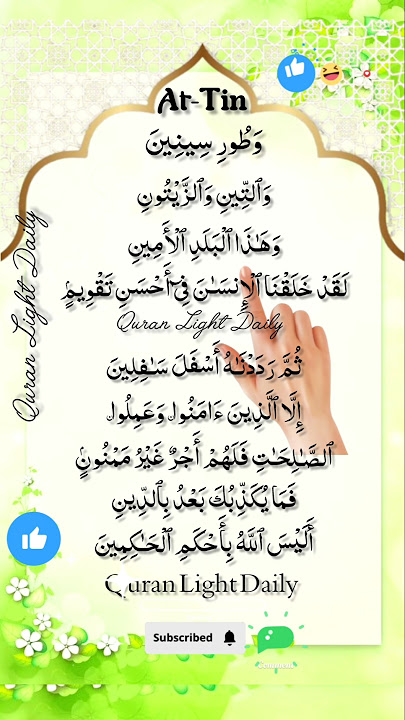 At-Tin
وَطُورِ سِينِينَ
وَٱلتِّينِ وَٱلزَّيْتُونِ
وَهَٰذَا ٱلْبَلَدِ ٱلْأَمِينِ
لَقَدْ خَلَقْنَا ٱلْإِنسَٰنَ فِىٓ أَحْسَنِ تَقْوِيمٍ
Quran Light Daily
ثُمَّ رَدَدْنَٰهُ أَسْفَلَ سَٰفِلِينَ
إِلَّا ٱلَّذِينَ ءَامَنُوا۟ وَعَمِلُوا۟
ٱلصَّٰلِحَٰتِ فَلَهُمْ أَجْرٌ غَيْرُ مَمْنُونٍ
فَمَا يُكَذِّبُكَ بَعْدُ بِٱلدِّينِ
أَلَيْسَ ٱللَّهُ بِأَحْكَمِ ٱلْحَٰكِمِينَ
Quran Light Daily
Quran Light Daily
Subscribed